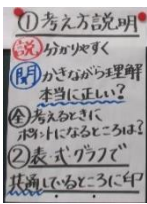 ①考え方説明
説 分かりやすく
聞 かきながら理解
本当に正しい?
全 考えるときに
ポイントになるところは?
②表・式・グラフで
共通しているところに印